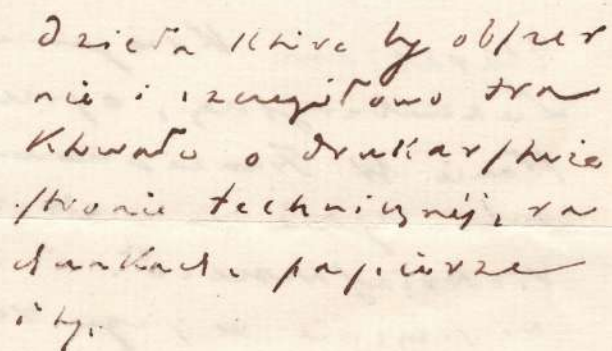 dzieła które by obszer
nie i szczegółowo tra
ktowało o drukarstwie
stronie technicznéj, ra
chunkach, papierze
i t.